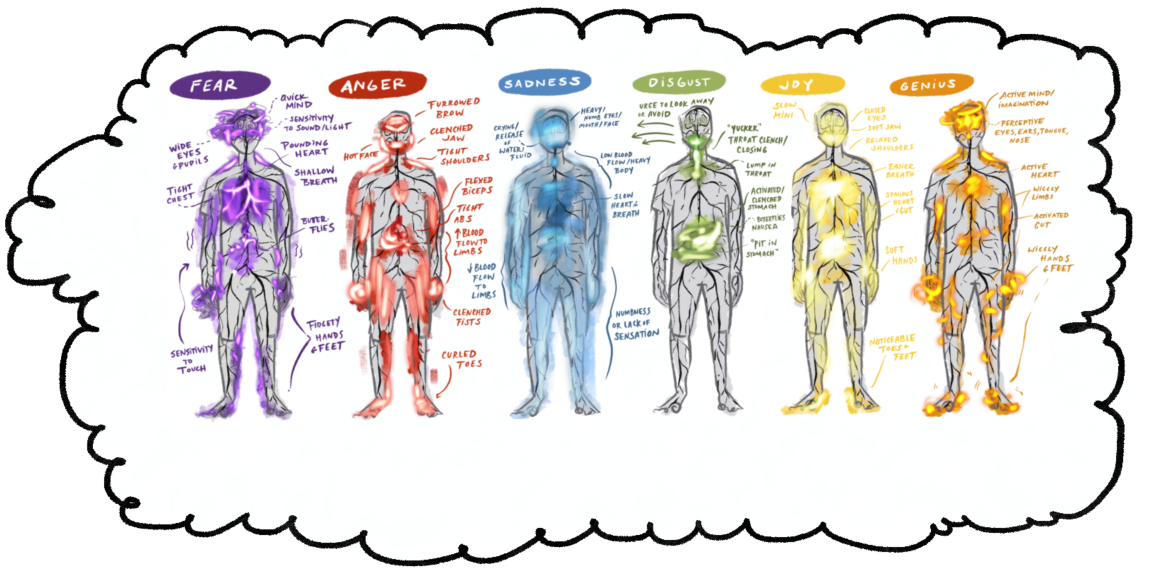 FEAR
QUICK
MIND
SENSITIVITY
TO SOUND/LIGHT
WIDE
EYES
& PUPILS
POUNDING
HEART
SHALLOW
BREATH
TIGHT
CHEST
BUTTER-
FLIES
SENSITIVITY
TO
TOUCH
FIDGETY
HANDS
& FEET
ANGER
FURROWED
BROW
CLENCHED
JAW
HOT FACE
TIGHT
SHOULDERS
FLEXED
BICEPS
TIGHT
ABS
↑ BLOOD
FLOW TO
LIMBS
CLENCHED
FISTS
CURLED
TOES
SADNESS
HEAVY/
NUMB EYES/
MOUTH/FACE
CRYING/
RELEASE
OF
WATER/
FLUID
LOW BLOOD
FLOW/HEAVY
BODY
SLOW
HEART &
BREATH
↓ BLOOD
FLOW
TO
LIMBS
NUMBNESS
OR LACK OF
SENSATION
DISGUST
URGE TO LOOK AWAY
OR AVOID
"YUCKER"
THROAT CLENCH/
CLOSING
LUMP IN
THROAT
ACTIVATED/
CLENCHED
STOMACH
NAUSEA
"PIT IN
STOMACH"
JOY
SLOW
MIND
CLOSED
EYES
SOFT JAW
RELAXED
SHOULDERS
EASIER
BREATH
SPACIOUS
HEART
& GUT
SOFT
HANDS
NOTICEABLE
TOES +
FEET
GENIUS
ACTIVE MIND/
IMAGINATION
PERCEPTIVE
EYES, EARS, TONGUE,
NOSE
ACTIVE
HEART
WIGGLY
LIMBS
ACTIVATED
GUT
WIGGLY
HANDS
& FEET